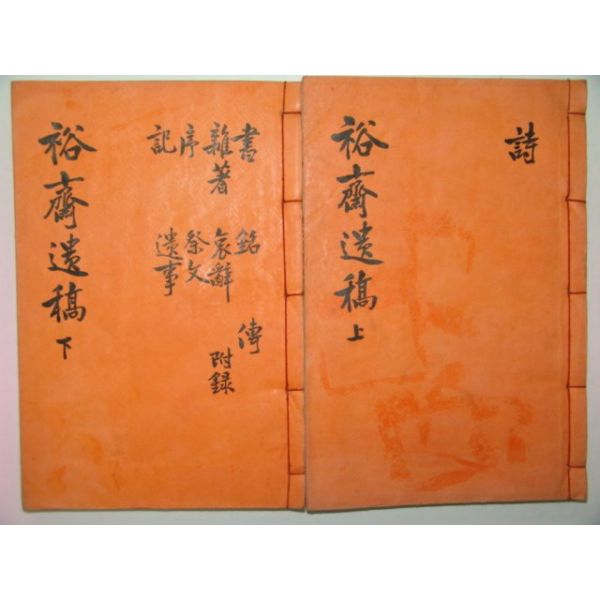 詩
裕齋遺稿 上
書 銘 傳
雜著 哀辭 附録
序 祭文
記 遺事
裕齋遺稿 下